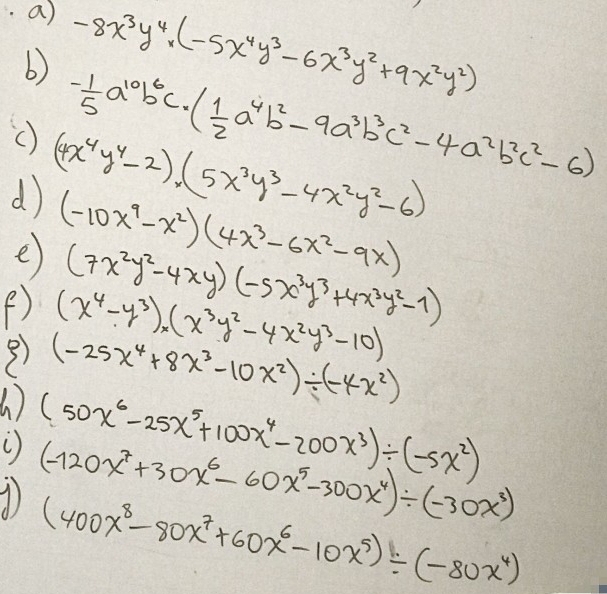 a) -8x³y⁴.(-5x⁴y³-6x³y²+9x²y²)
b) -1/5 a¹⁰b⁶c.(1/2 a⁴b²-9a³b³c²-4a²b²c²-6)
c) (4x⁴y⁴-2).(5x³y³-4x²y²-6)
d) (-10x⁹-x²)(4x³-6x²-9x)
e) (7x²y²-4xy)(-5x³y³+4x³y²-1)
f) (x⁴-y³).(x³y²-4x²y³-10)
g) (-25x⁴+8x³-10x²)÷(-4x²)
h) (50x⁶-25x⁵+100x⁴-200x³)÷(-5x²)
i) (-120x⁷+30x⁶-60x⁵-300x⁴)÷(-30x³)
j) (400x⁸-80x⁷+60x⁶-10x⁵)÷(-80x⁴)